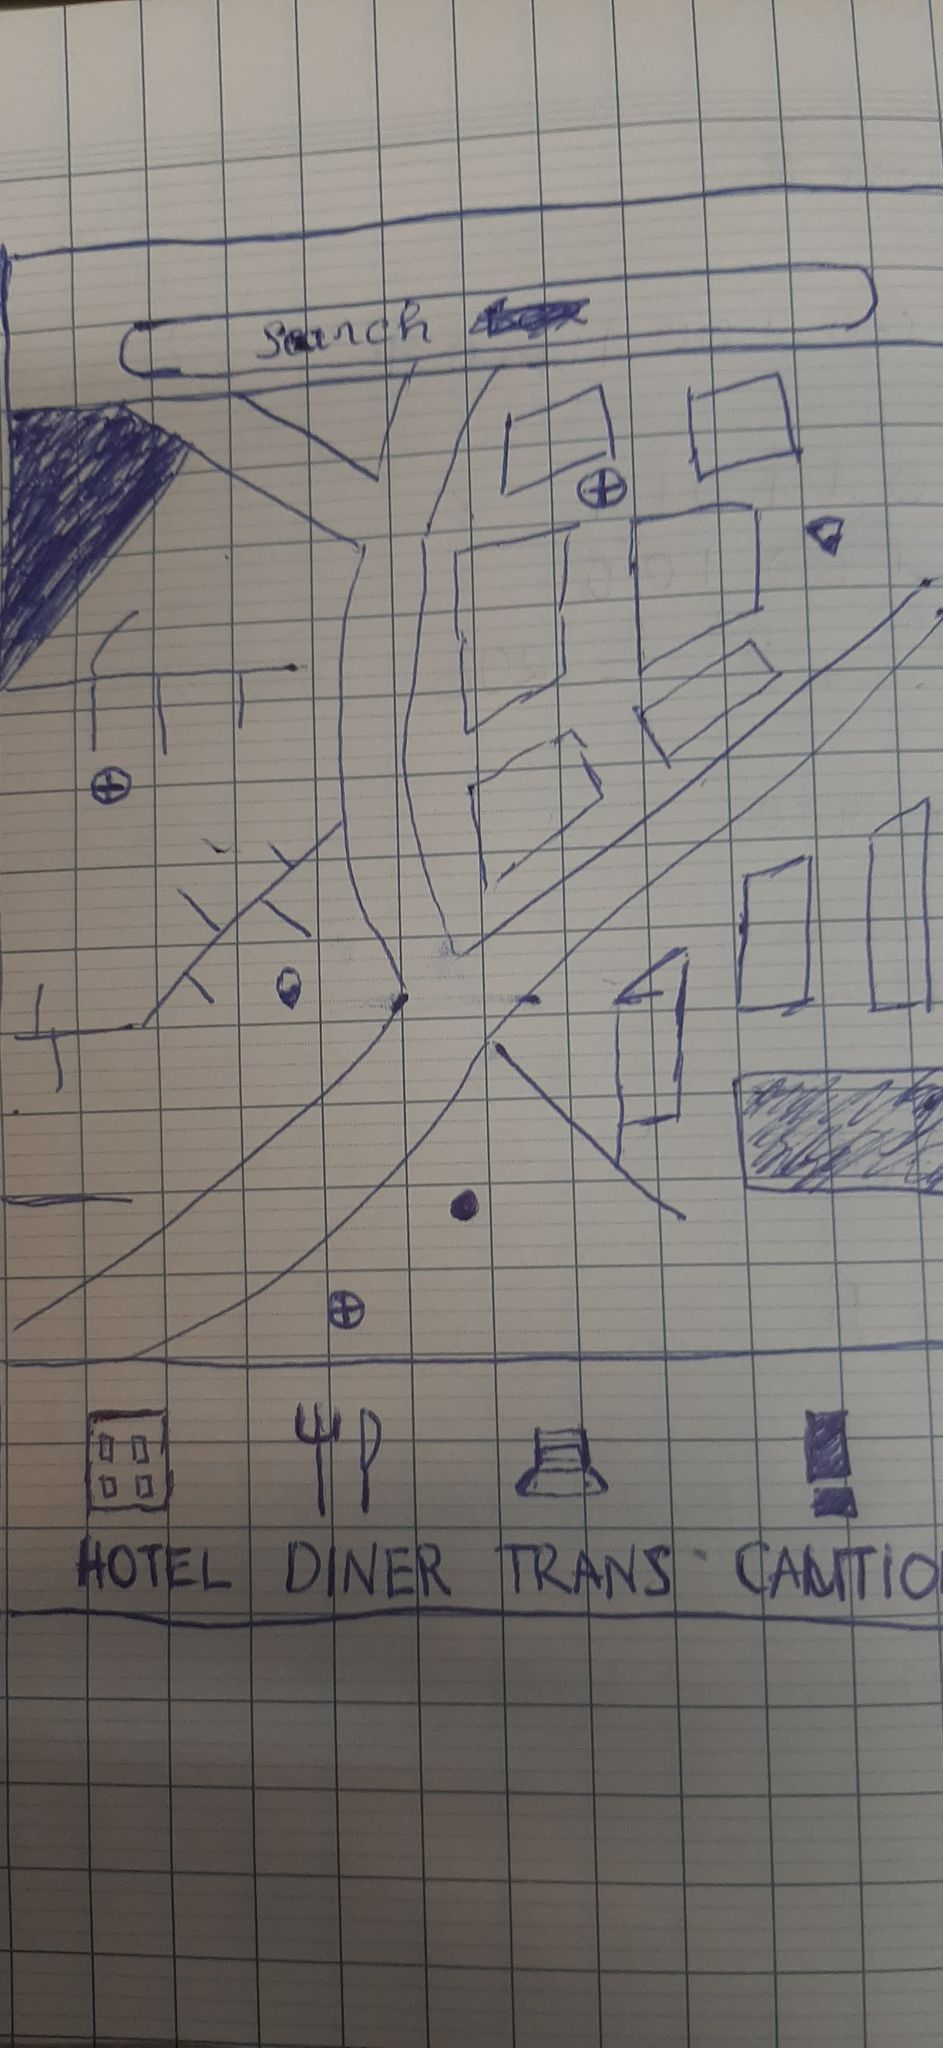 Search
HOTEL DINER TRANS CAMTIO